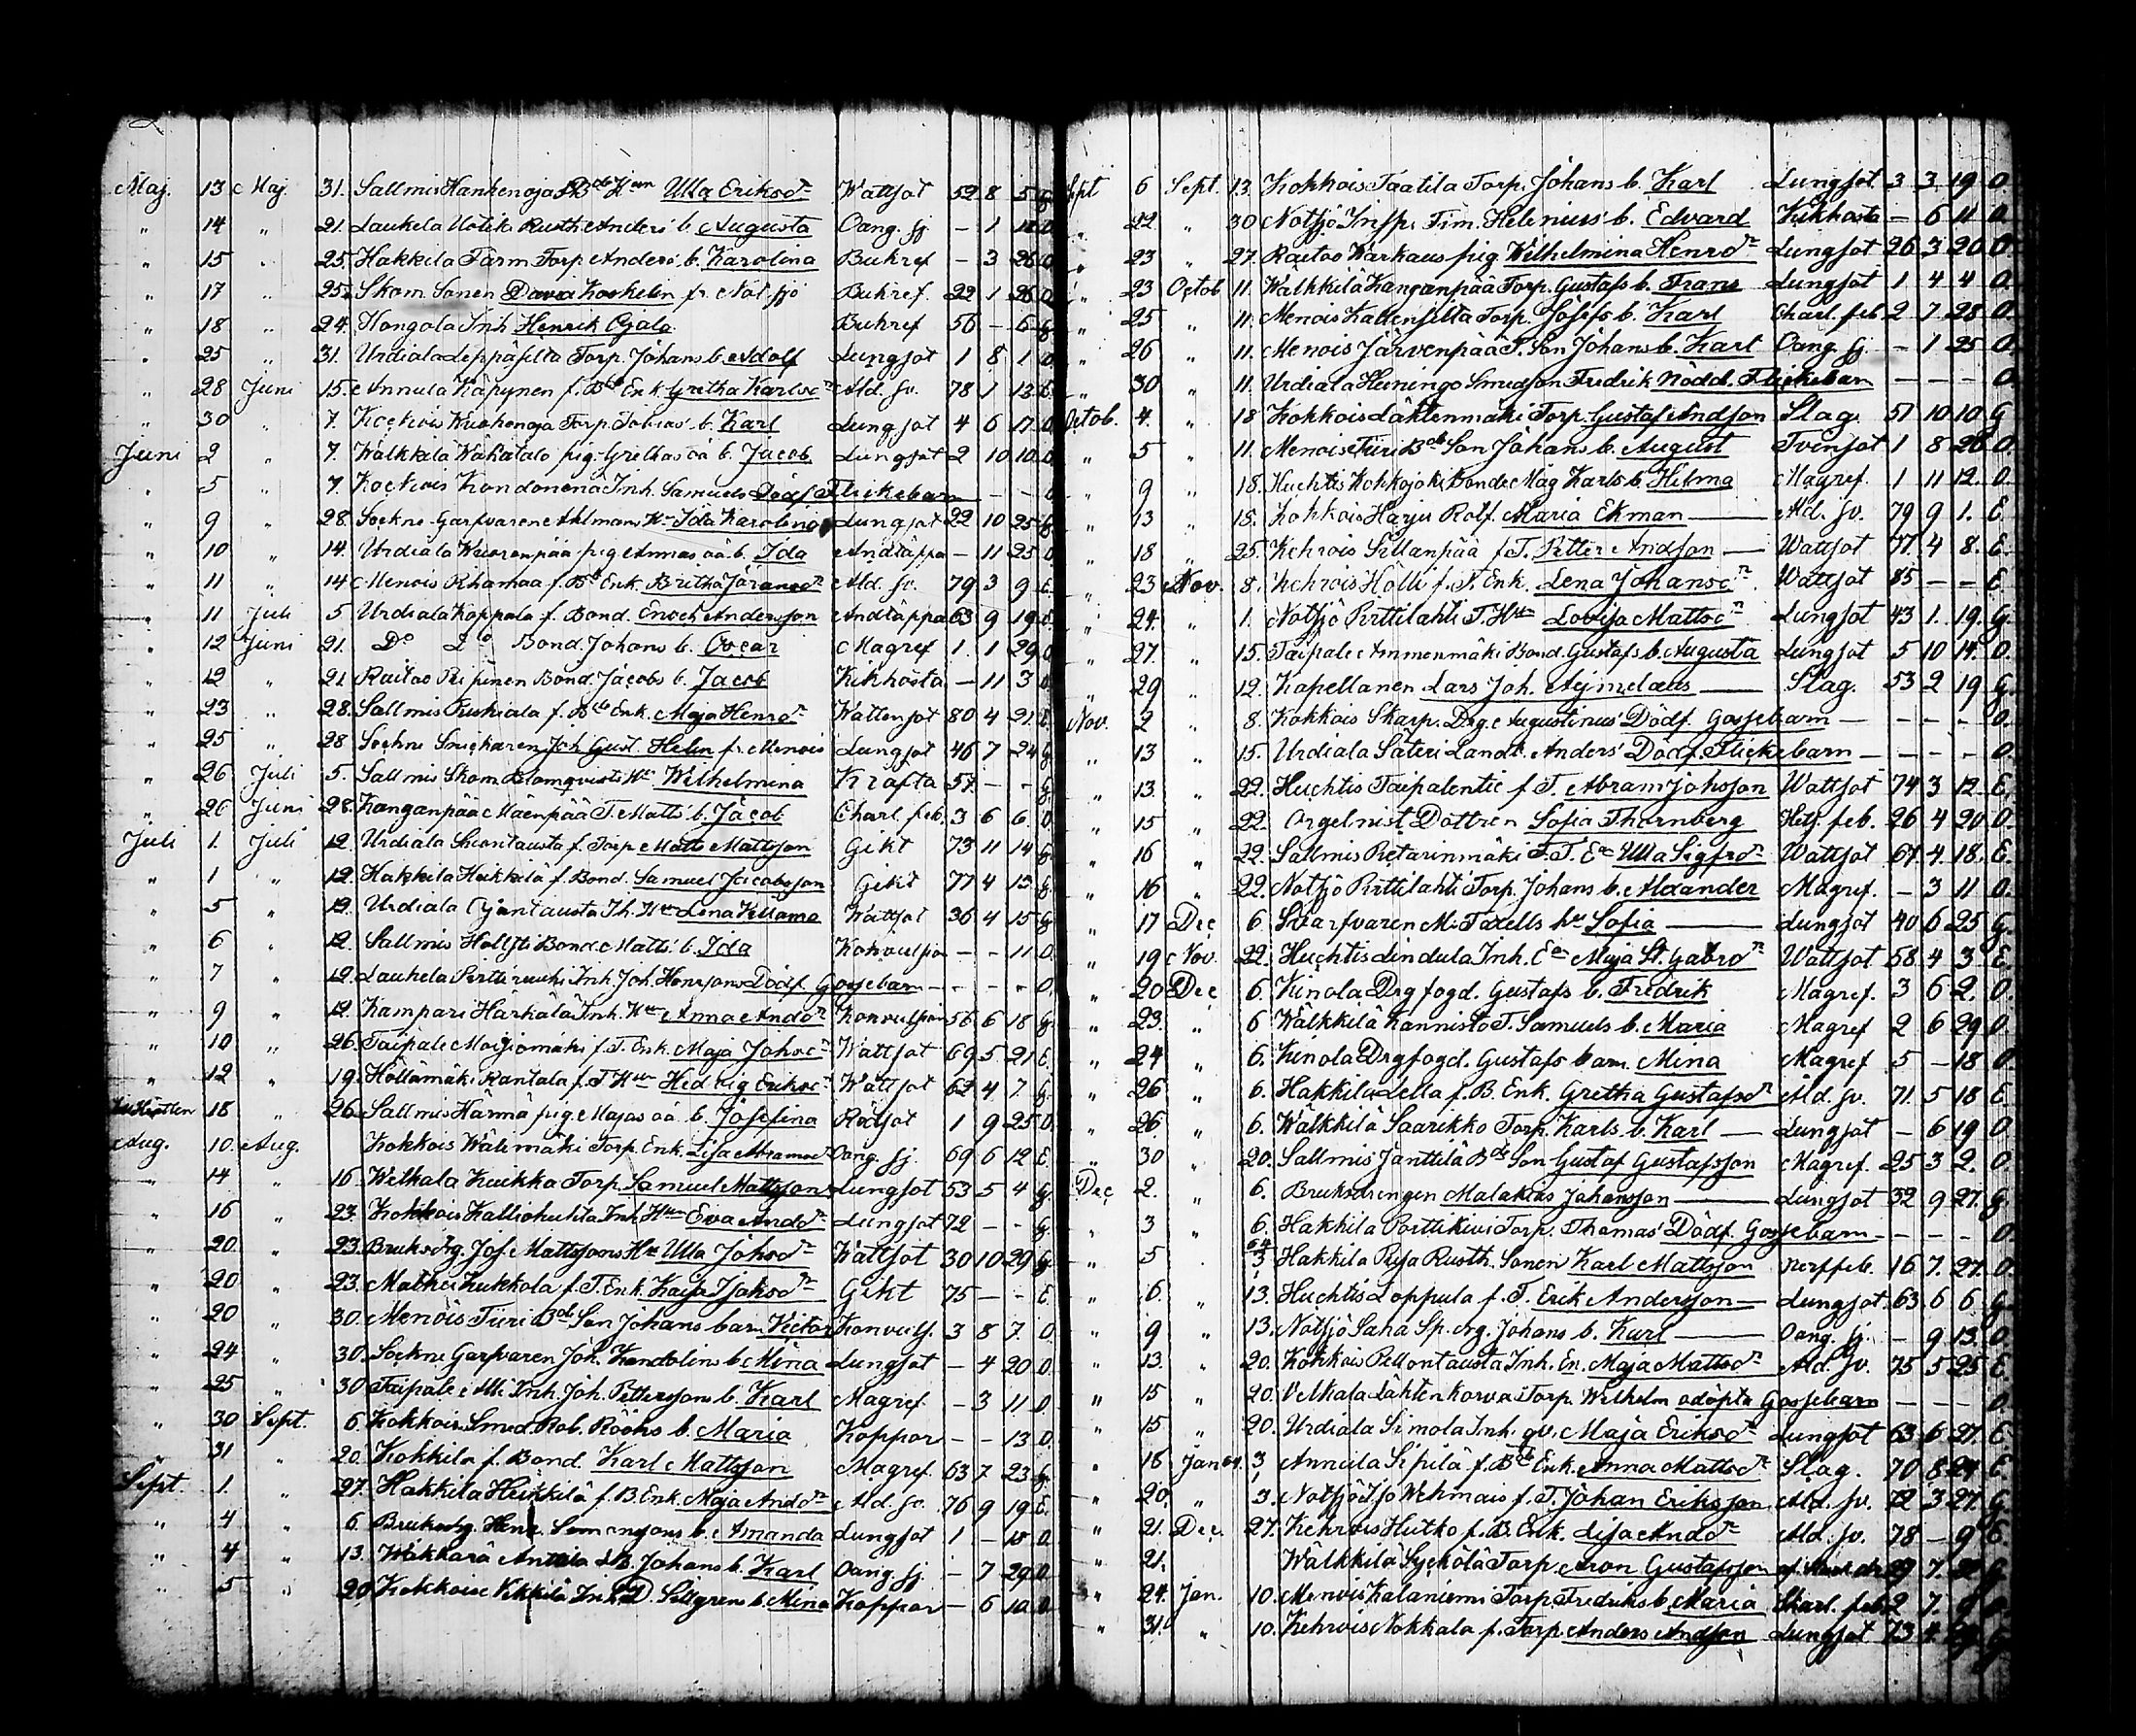 Maj. 13 Maj. 31. Sallmis Hankenoja Bde H:an Ulla Eriksdr Wattsot 52 8 5 G.
" 14 " 21. Laukela Uotik Rusth. Anders b. Augusta Oang. sj. – 1 O.
" 15 " 25. Hakkila Farm Torp Anders b. Karolina Bukref – 3 26 O.
" 17 " 25. Skom. Sonen David Koskelin fr. Notsjö Bukref. 22 1 26 O.
" 18 " 24. Hongola Inh. Henrik Ojala Bukref 56 – 6 G.
" 25 " 31. Urdiala Leppäsilta Torp. Johans b. Adolf Lungsot 1 8 1 O.
" 28 Juni 15. Annula Käpynen f. Bd Enk. Gretha Karlsdr Åld. sv. 78 1 13 E.
" 30 " 7. Kockois Torp. Tobias b. Karl Lungsot 4 6 17 O.
Juni 2 " 7. Wälkkilä Wähätalo pig. Grethas oä b. Jacob Lungsot 2 10 10 O.
" 5 " 7. Kockois Inh. Samuels Dödf. Flickebarn – – – O.
" 9 " 28. Sockne Garfvaren Ahlmans H:u Ida Karolina Lungsot 22 10 25 G.
" 10 " 14. Urdiala Wuorenpää pig. Annas oä b. Ida Andtäppa – 11 25 O.
" 11 " 14. Menois Rihamaa f. Bd Enk. Britha Göransdr Åld. sv. 79 3 9 E.
" 11 Juli 5 Urdiala Koppala f. Bond. Enoch Andersson Andtäppa 63 9 19 E.
" 12 Juni 21. Do Do Bond. Johans b. Oscar Magref 1 1 29 O.
" 12 " 21. Raitoo Pipinen Bond. Jacobs b. Jacob Kikhosta – 11 3 O.
" 23 " 28. Sallmis Puskiala f. Bde Enk. Maja Henrdr Wattensot 80 4 21 E.
" 25 " 28 Sockne Snickaren Joh. Gust. Helin fr. Menois Lungsot 46 7 24 G.
" 26 Juli 5. Sallmis Skom. Blomqvists H:u Wilhelmina Kräfta 57 – – G.
" 26 Juni 28. Kanganpää Mäenpää T. Matts b. Jacob Charl. feb. 3 6 6 O.
Juli 1. Juli 12. Urdiala Skontausta f. Torp Matts Mattsson Gikt 73 11 14 G.
" 1 " 12. Hakkila Heikkilä f. Bond. Samuel Jacobsson Gikt 77 4 13 G.
" 5 " 19. Urdiala Ojantausta Th. H:u Lena Wattsot 36 4 15 G.
" 6 " 12. Sallmis Hollsti Bond. Matts b. Ida Konvulsion – – 11 O.
" 7 " 12. Laukela Inh. Joh. Henrssons Dödf. Gossebarn – – – O.
" 9 " 12. Kampari Härkälä Inh. H:u Anna Anddr Konvulsion 56 6 18 G.
" 10 " 26. Taipale Moisiomäki f. T. Enk. Maja Johsdr Wattsot 69 5 21 E.
" 12 " 19. Hollämäki Rantala f. T H:u Hedvig Eriksdr Wattsot 62 4 7 G.
18 " 26. Sallmis Härmä pig. Majas oä b. Josefina Rödsot 1 9 25 O.
Aug. 10. Aug. Kokkois Wälimäki Torp. Enk. Lisa Abramsdr Oang. sj. 69 6 12 E.
" 14 " 16. Welkala Kuikka Torp. Samuel Mattsson Lungsot 53 5 4 G.
" 16 " 23. Kokkois Kalliohuhta Inh. H:u Eva Anddr Lungsot 72 – – G.
" 20. " 23. Bruksdrg. Jos. Mattssons H:u Ulla Johsdr Wattsot 30 10 29 G.
" 20 " 23. Mathei Kukkola f. T. Enk. Kajsa Isaksdr Gikt 75 – – E.
" 20 " 30. Menois Turi Bde Son Johans barn Victor Konvuls. 3 8 7 O.
" 24 " 30. Sockne Garfvaren Joh. Kandolins b. Mina Lungsot – 4 20 O.
" 25 " 30 Taipale Alli Inh. Joh. Petterssons b. Karl Magref – 3 11 O.
" 30 Sept. 6. Kokkois Smed. Rob. Rööks b. Maria Koppor – – 13 O.
" 31 " 20. Kokkila f. Bond. Karl Mattsson Magref. 63 7 23 G.
Sept. 1. " 27. Hakkila Heikkilä f. B. Enk. Maja Anddr Åld. sv. 76 9 19 E.
" 4 " 6. Bruksdrg. Henr. b. Amanda Lungsot 1 – O.
" 4 " 13. Wakkara Anttila Johans b. Karl Oang. sj. – 7 29 O.
" 5 " 20. Kokkois Inh. D. Sillgrens b. Mina Koppor – 6 10 O.
Sept 6 Sept. 13. Kokkois Taatila Torp. Johans b. Karl Lungsot 3 3 19 O.
" 22 " 30 Notsjö Insp. Tim. Helenius' b. Edvard Kikhosta – 6 11 O.
" 23 " 27. Raitoo Warkaus pig. Wilhelmina Henrdr Lungsot 26 3 20 O.
" 23 Octob. 11. Wälkkilä Kanganpää Torp. Gustafs b. Frans Lungsot 1 4 4 O.
" 25 " 11. Menois Kallensilta Torp. Josefs b. Karl Charl. feb. 2 7 28 O.
" 26 " 11. Menois Järvenpää T. Son Johans b. Karl Oang. sj. – 1 25 O.
" 30 " 11. Urdiala Heiningo Smedson Fredrik Nödd. Flickebarn – – – O.
Octob. 4. " 18 Kokkois Lähtenmäki Torp. Gustaf Andsson Slag. 51 10 10 G.
" 5 " 11. Menois Turi Bde Son Johans b. August Tvinsot 1 8 28 O.
" 9 " 18. Huchtis Kohkojoki Bonde Måg Karls b. Hilma Magref. 1 11 12 O.
" 13 " 18. Kokkois Harju Rotf. Maria Ekman Åld. sv. 79 9 1. E.
" 18 " 25. Kehrois Sillanpää f. T. Petter Andsson Wattsot 77 4 8. E.
" 23 Nov. 8. Kehrois Hölli f. T. Enk. Lena Johansdr Wattsot 85 – – E.
" 24. " 1. Notsjö Pirttilahti T. H:u Lovisa Mattsdr Lungsot 43 1. 19. G.
" 27. " 15. Taipale Ammenmäki Bond. Gustafs b. Augusta Lungsot 5 10 14. O.
" 29 " 12. Kapellanen Lars Joh. Aejmelæus Slag. 53 2 19 G.
Nov. 2 " 8. Kokkois Skarp. Drg. Augustinus' Dödf. Gossebarn – – – O.
" 13 " 15. Urdiala Säteri Landb. Anders' Dödf. Flickebarn – – – O.
" 13. " 22. Huchtis Taipalentie f. T. Abram Johsson Wattsot 74 3 12. E.
" 15 " 22. Orgelnist. Dottren Sofia Thornberg Hets. feb. 26 4 20 O.
" 16 " 22. Sallmis Petarinmäki f. T. E:a Ulla Sigfrdr Wattsot 67 4. 18. E.
" 16 " 22. Notsjö Pirttilahti Torp. Johans b. Alexander Magref. – 3 11 O.
" 17 Dec 6. Garfvaren M. Taxells h:u Sofia Lungsot 40 6 25 G.
" 19 Nov. 22. Huchtis Lindula Inh. E:a Maja St. Gabrdr Wattsot 58 4 3 E.
" 20 Dec 6. Kinola Drgfogd. Gustafs b. Fredrik Magref. 3 6 2. O.
" 23. " 6 Wälkkilä Kannisto T. Samuels b. Maria Magref 2 6 29 O.
" 24 " 6. Kinola Drgfogd. Gustafs barn Mina Magref 5 – 18 O.
" 26 " 6. Hakkila Lella f. B. Enk. Gretha Gustafsdr Åld. sv. 71. 5 18 E.
" 26. " 6. Wälkkilä Saarikko Torp. Karls b. Karl Lungsot – 6 19 O.
" 30 " 20. Sallmis Janttilä Bde Son Gustaf Gustafsson Magref. 25 3 2. O.
Dec. 2. " 6. Bruksdrengen Malakias Johansson Lungsot 32 9 27. G.
" 3 " 6. Hakkila Pirttikivi Torp. Thomas' Dödf. Gossebarn – – – O.
" 5 64 3/1 Hakkila Pusa Rusth. Sonen Karl Mattsson Nerffeb. 16 7. 27. O.
" 6. " 13. Huchtis Loppula f. T. Erik Andersson Lungsot. 63 6 6 G.
" 9 " 13. Notsjö Saha Sp. drg. Johans b. Karl Oang. sj. – 9 13 O.
" 13. " 20. Kokkois Pellontausta Inh. En. Maja Mattsdr Åld. sv. 75 5 25 E.
" 15 " 20. Velkala Lähtenkorva Torp. Wilhelm odöpta Gossebarn – – – O.
" 15 " 20. Urdiala Simola Inh. qv. Maja Eriksdr Lungsot 63 6 27. E.
" 16 Jan 64. 3/1 Annula Sipilä f. Bde Enk. Anna Mattsdr Slag. 70 8 24 E.
" 20. " 3. Notsjö Iso Wehmais f. T. Johan Eriksson Åld. sv. 72 3 27. G.
" 21. Dec. 27. Kehrois Hutko f. B. Enk. Lisa Anddr Åld. sv. 78 – 9 E.
" 21. Wälkkilä Syckölä Torp. Aron Gustafsson 7. G.
" 24. Jan. 10. Menois Kalaniemi Torp. Fredriks b. Maria Skarl. feb. 2 7. 9
" 31. " 10. Kehrois Nokkala f. Torp. Anders Andsson Lungsot 73 4. G.